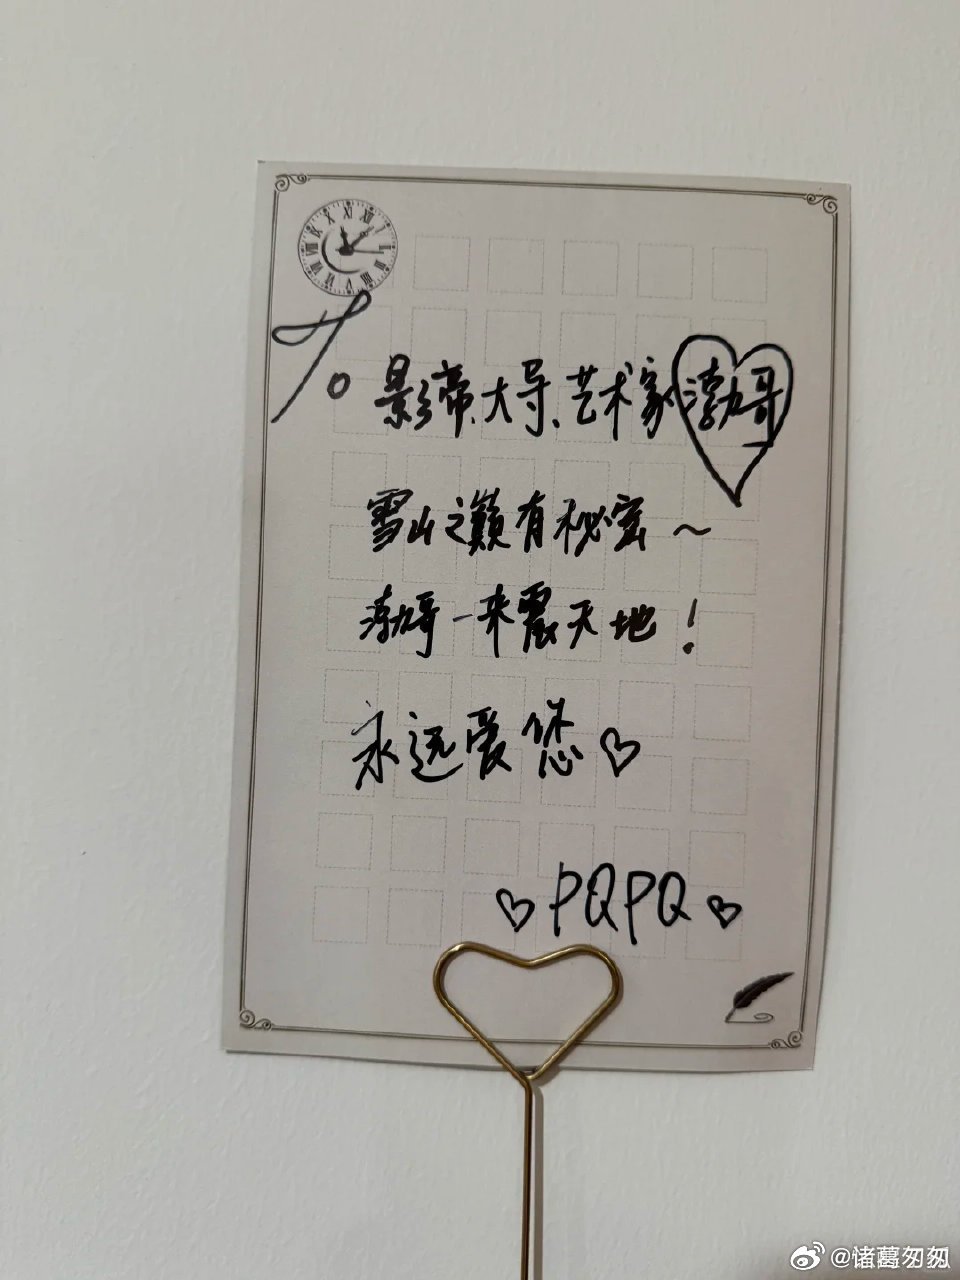 To 影帝、大导、艺术家渤哥
雪山之巅有秘密~
渤哥一来震天地!
永远爱您♡
♡PQPQ♡
@诸葛匆匆